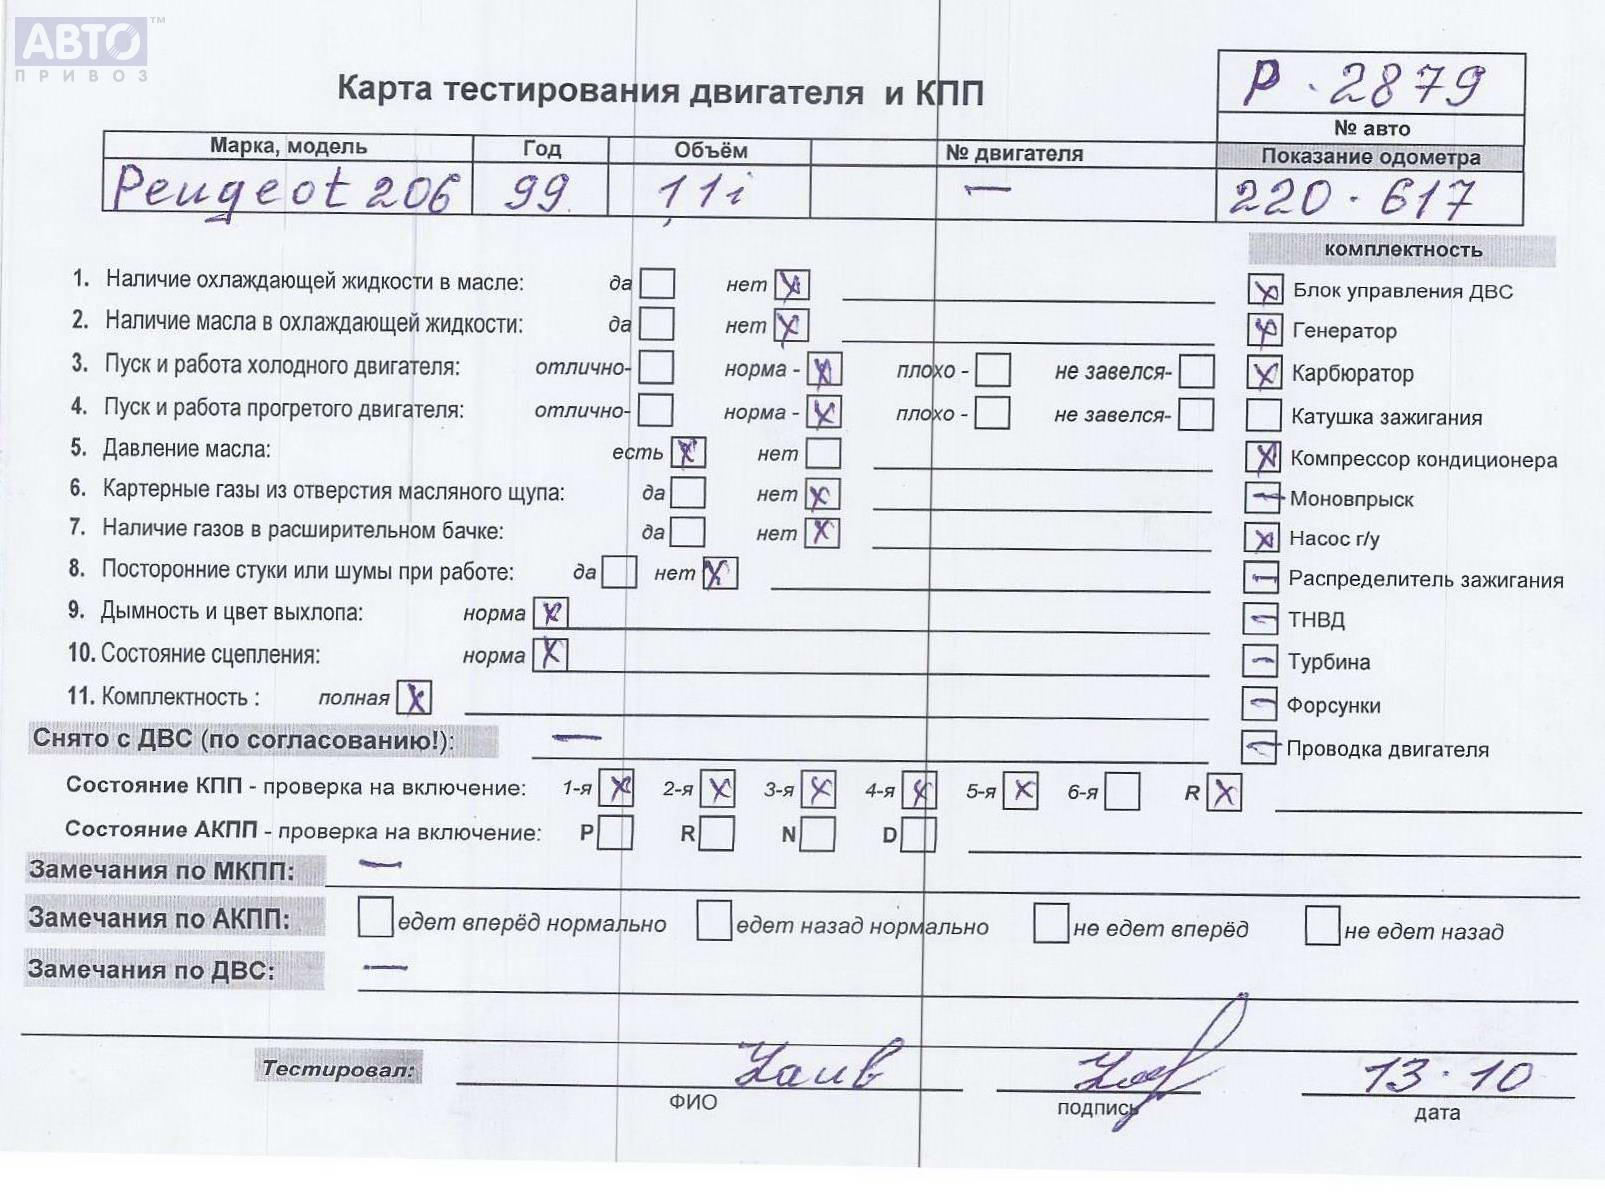 АВТО™
ПРИВОЗ
Карта тестирования двигателя и КПП
Р. 2879
№ авто
Марка, модель Год Объём № двигателя Показание одометра
Peugeot 206 99 1,1i — 220.617
комплектность
1. Наличие охлаждающей жидкости в масле: да нет
Блок управления ДВС
2. Наличие масла в охлаждающей жидкости: да нет
Генератор
3. Пуск и работа холодного двигателя: отлично- норма - плохо - не завелся-
Карбюратор
4. Пуск и работа прогретого двигателя: отлично- норма - плохо - не завелся-
Катушка зажигания
5. Давление масла: есть нет
Компрессор кондиционера
6. Картерные газы из отверстия масляного щупа: да нет
Моновпрыск
7. Наличие газов в расширительном бачке: да нет
Насос г/у
8. Посторонние стуки или шумы при работе: да нет
Распределитель зажигания
9. Дымность и цвет выхлопа: норма
ТНВД
10. Состояние сцепления: норма
Турбина
11. Комплектность : полная
Форсунки
Снято с ДВС (по согласованию!): —
Проводка двигателя
Состояние КПП - проверка на включение: 1-я 2-я 3-я 4-я 5-я 6-я R
Состояние АКПП - проверка на включение: P R N D
Замечания по МКПП: —
Замечания по АКПП: едет вперёд нормально едет назад нормально не едет вперёд не едет назад
Замечания по ДВС: —
Тестировал: 13.10
ФИО подпись дата